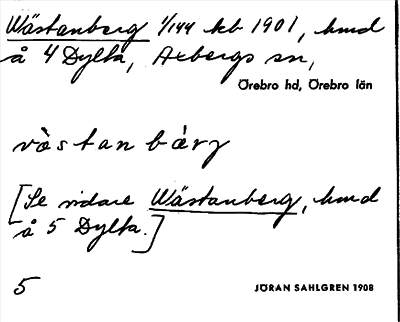 Wästanberg 1/144 kb 1901, hmd
å 4 Dylta, Axbergs sn,
Örebro hd, Örebro län
västan bärg
[Se vidare Wästanberg, hmd
å 5 Dylta.]
5
JÖRAN SAHLGREN 1908